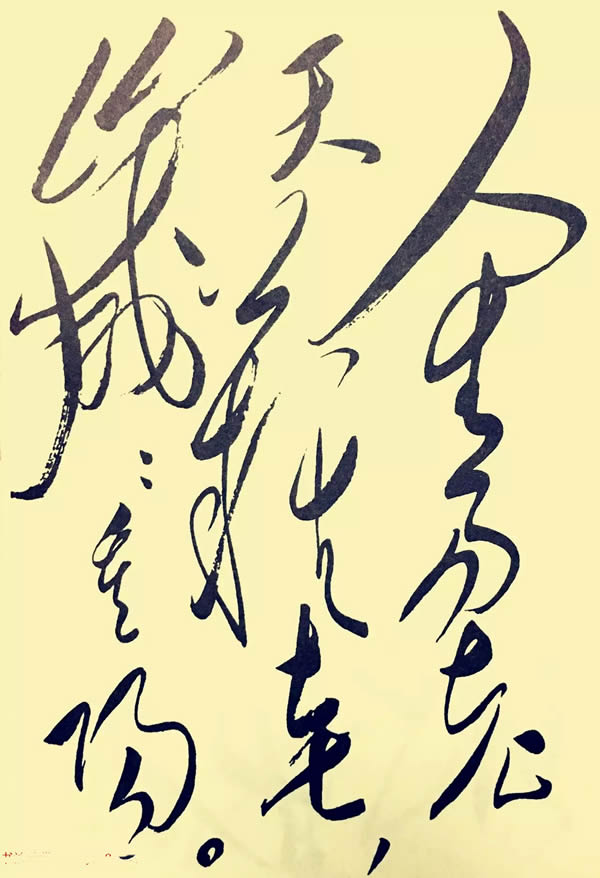 人生易老
天难老，
岁岁重阳。